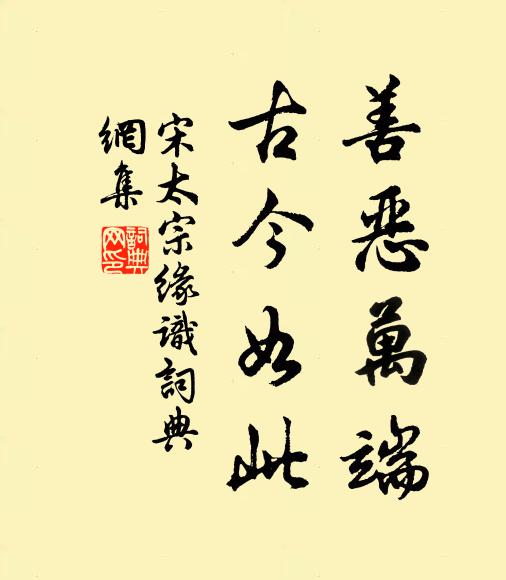 善惡萬端
古今如此
宋太宗緣識詞典
網集
詞典
网印